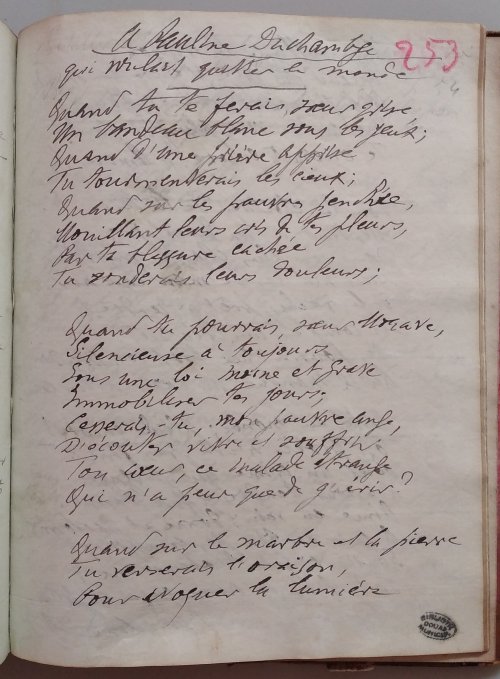 A Pauline Duchambge
253
qui voulait quitter le monde
Quand tu te ferais sœur grise
Un bandeau blanc sous les yeux;
Quand d'une prière apprise
Tu tourmenterais les cieux;
Quand sur les pauvres penchée,
Mouillant leurs cris de tes pleurs,
Par ta blessure cachée
Tu sonderais leurs douleurs;
Quand tu pourrais, sœur Morave,
Silencieuse à toujours
Sous une loi morne et grave
Immobiliser tes jours;
Cesserais-tu, mon pauvre ange,
D'écouter vivre et souffrir
Ton cœur, ce malade étrange
Qui n'a peur que de guérir?
Quand sur le marbre et la pierre
Tu verserais l'oraison,
Pour évoquer la lumière
BIBLIOTH
DOUAI
MUNICIP